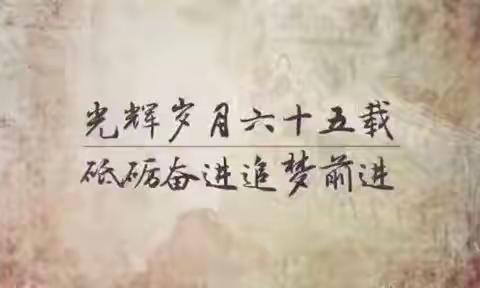 光辉岁月六十五载
砥砺奋进追梦前进